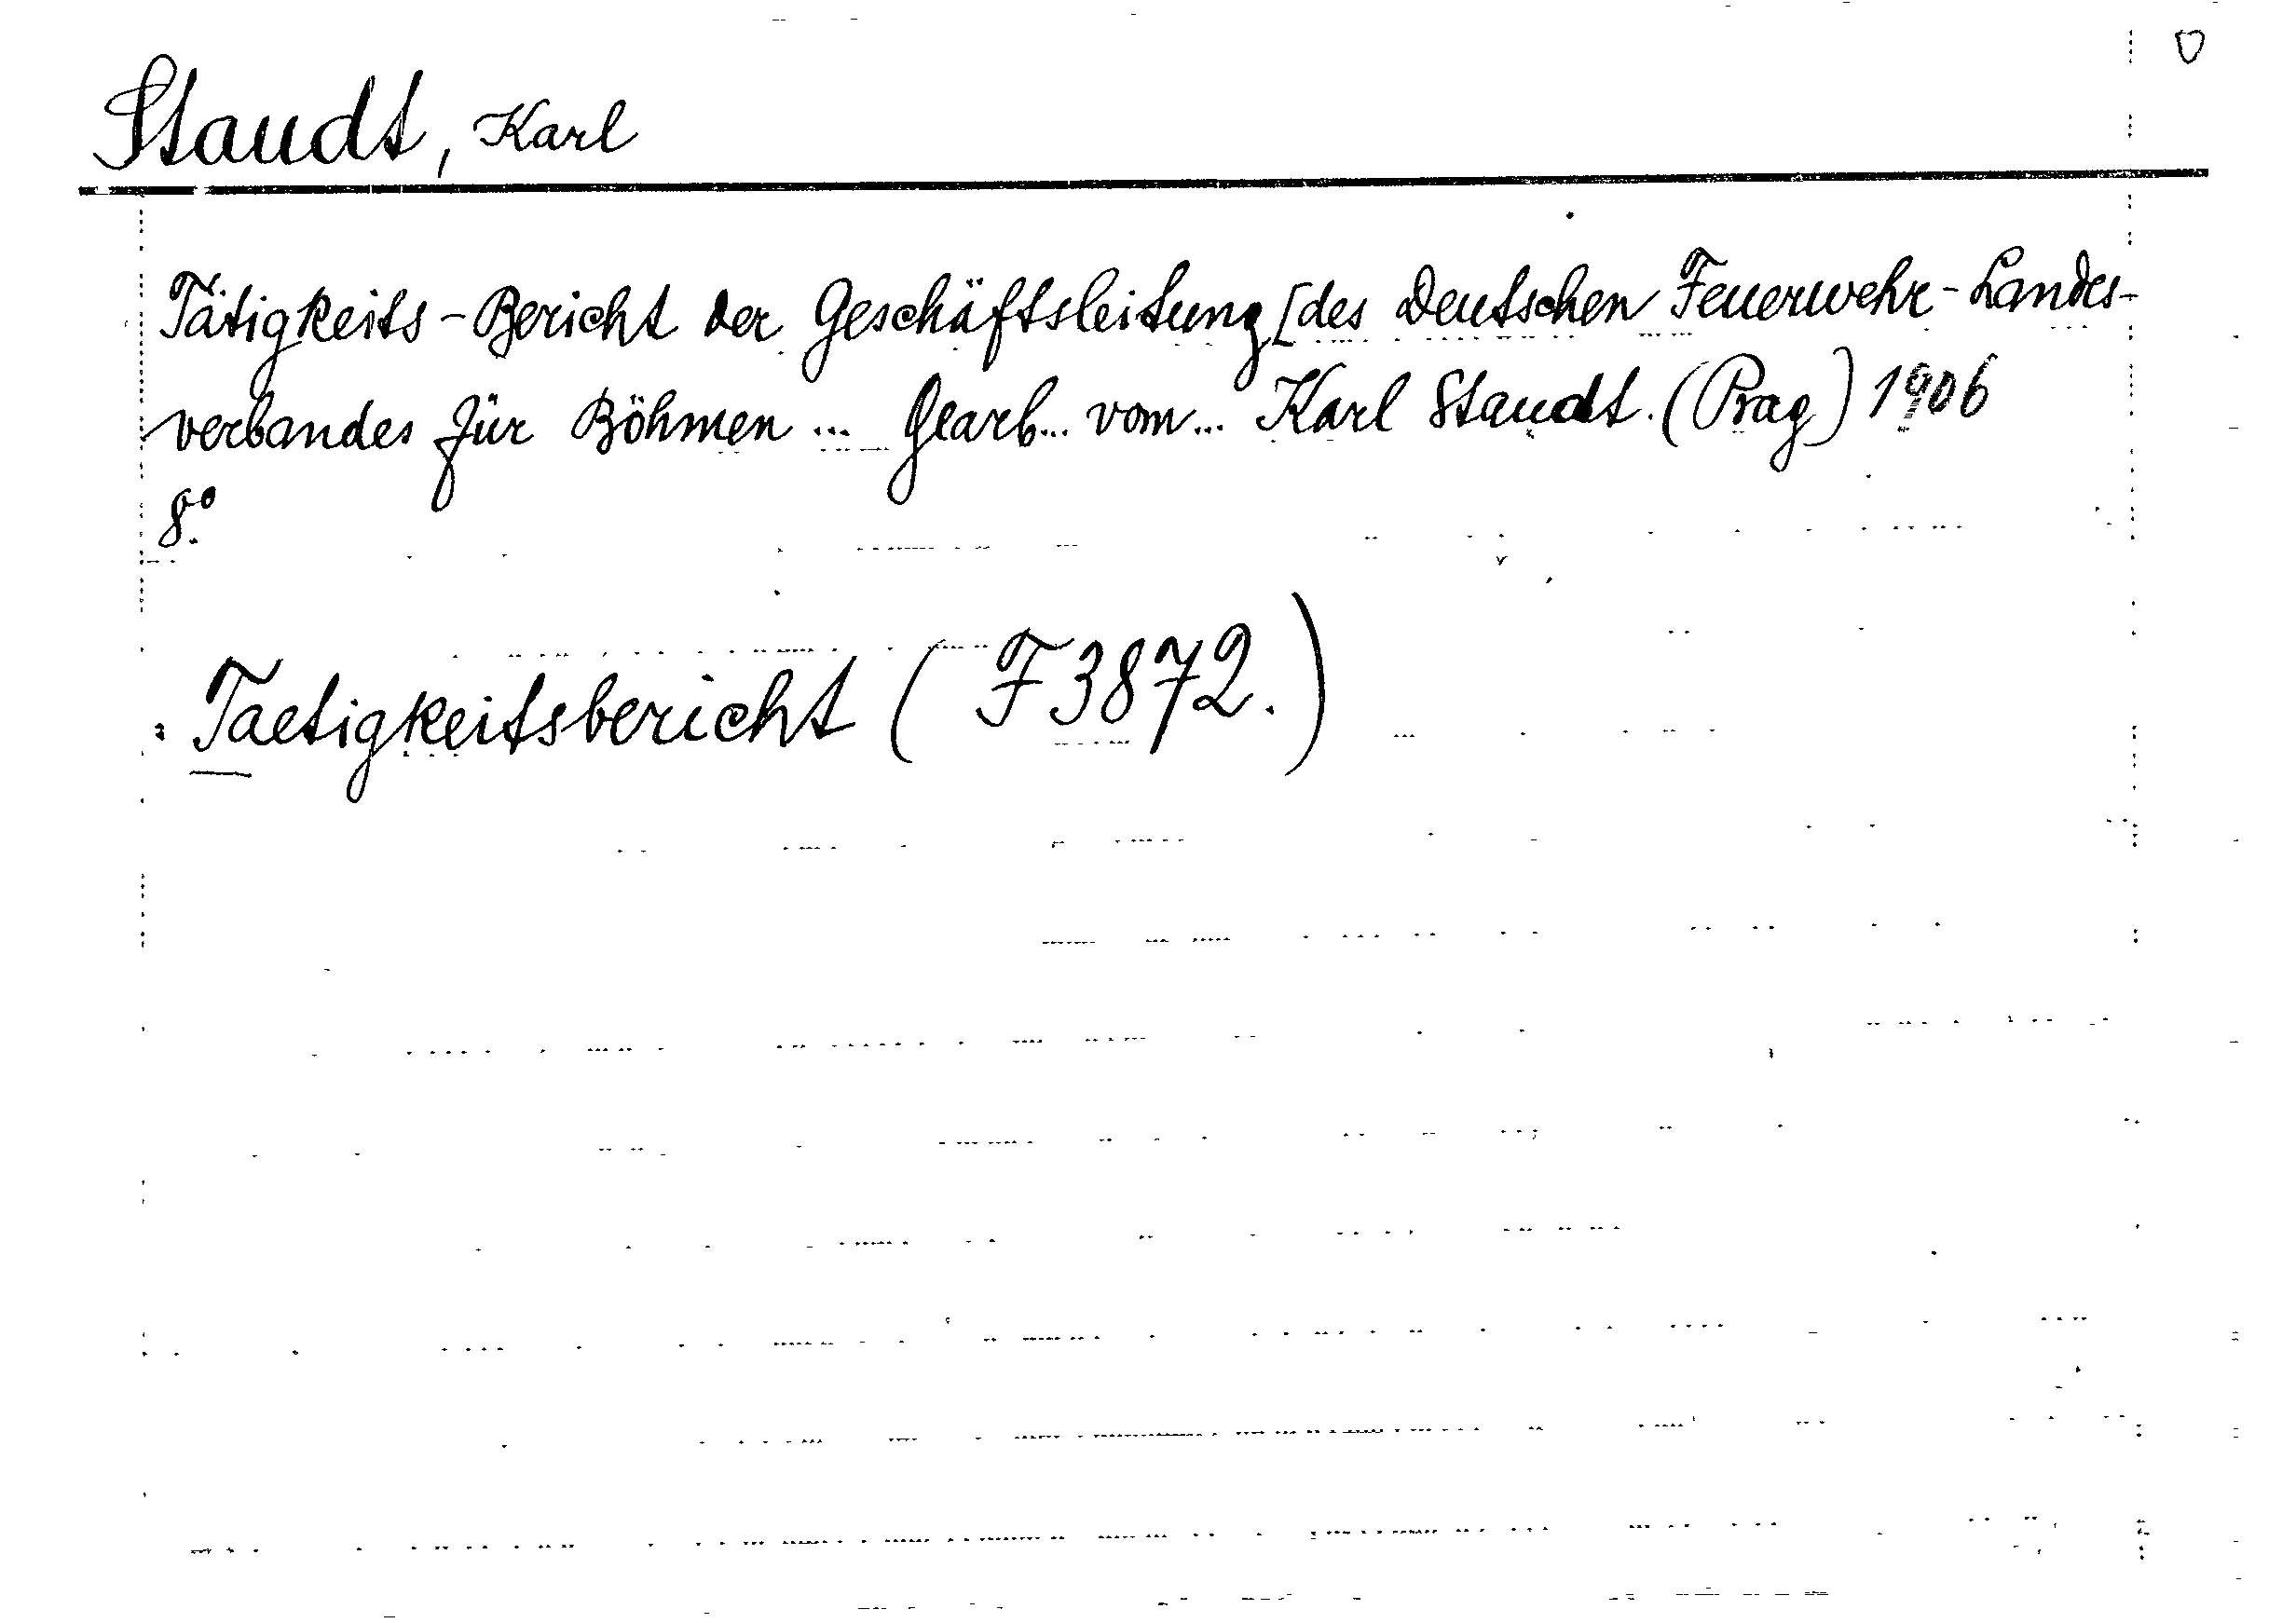 Staudt, Karl
Tätigkeits-Bericht der Geschäftsleitung [des Deutschen Feuerwehr-Landes-
verbandes für Böhmen ... Gearb... vom... Karl Staudt. (Prag) 1906
8°.
: Taetigkeitsbericht ( F 3872.)